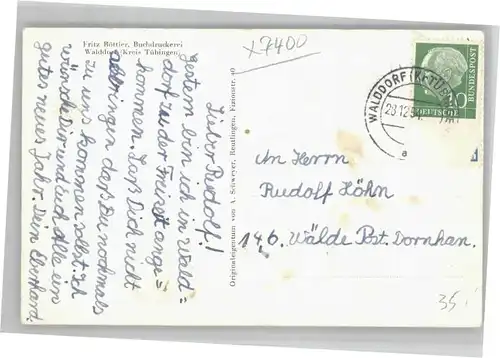 Fritz Böttler, Buchdruckerei
Walddorf (Kreis Tübingen)
x7400
Lieber Rudolf!
Gestern bin ich in Wald=
dorf zu der Freizeit ange=
kommen. Laß Dich nicht
bringen daß Du nochmals
zu uns kommen sollst. Ich
wünsche Dir und Euch alle ein
gutes neues Jahr. Dein Eberhard.
Originaleigentum von A. Schweyer, Reutlingen, 40
WALDDORF (Kr. TÜB
a
10
DEUTSCHE
BUNDESPOST
An Herrn
Rudolf Höhn
146. Wälde Post. Dornhan.
35.